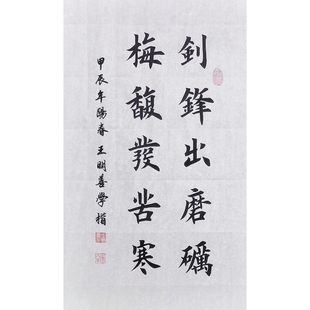 劍鋒出磨礪
梅馥發苦寒
甲辰年陽春王明善學楷